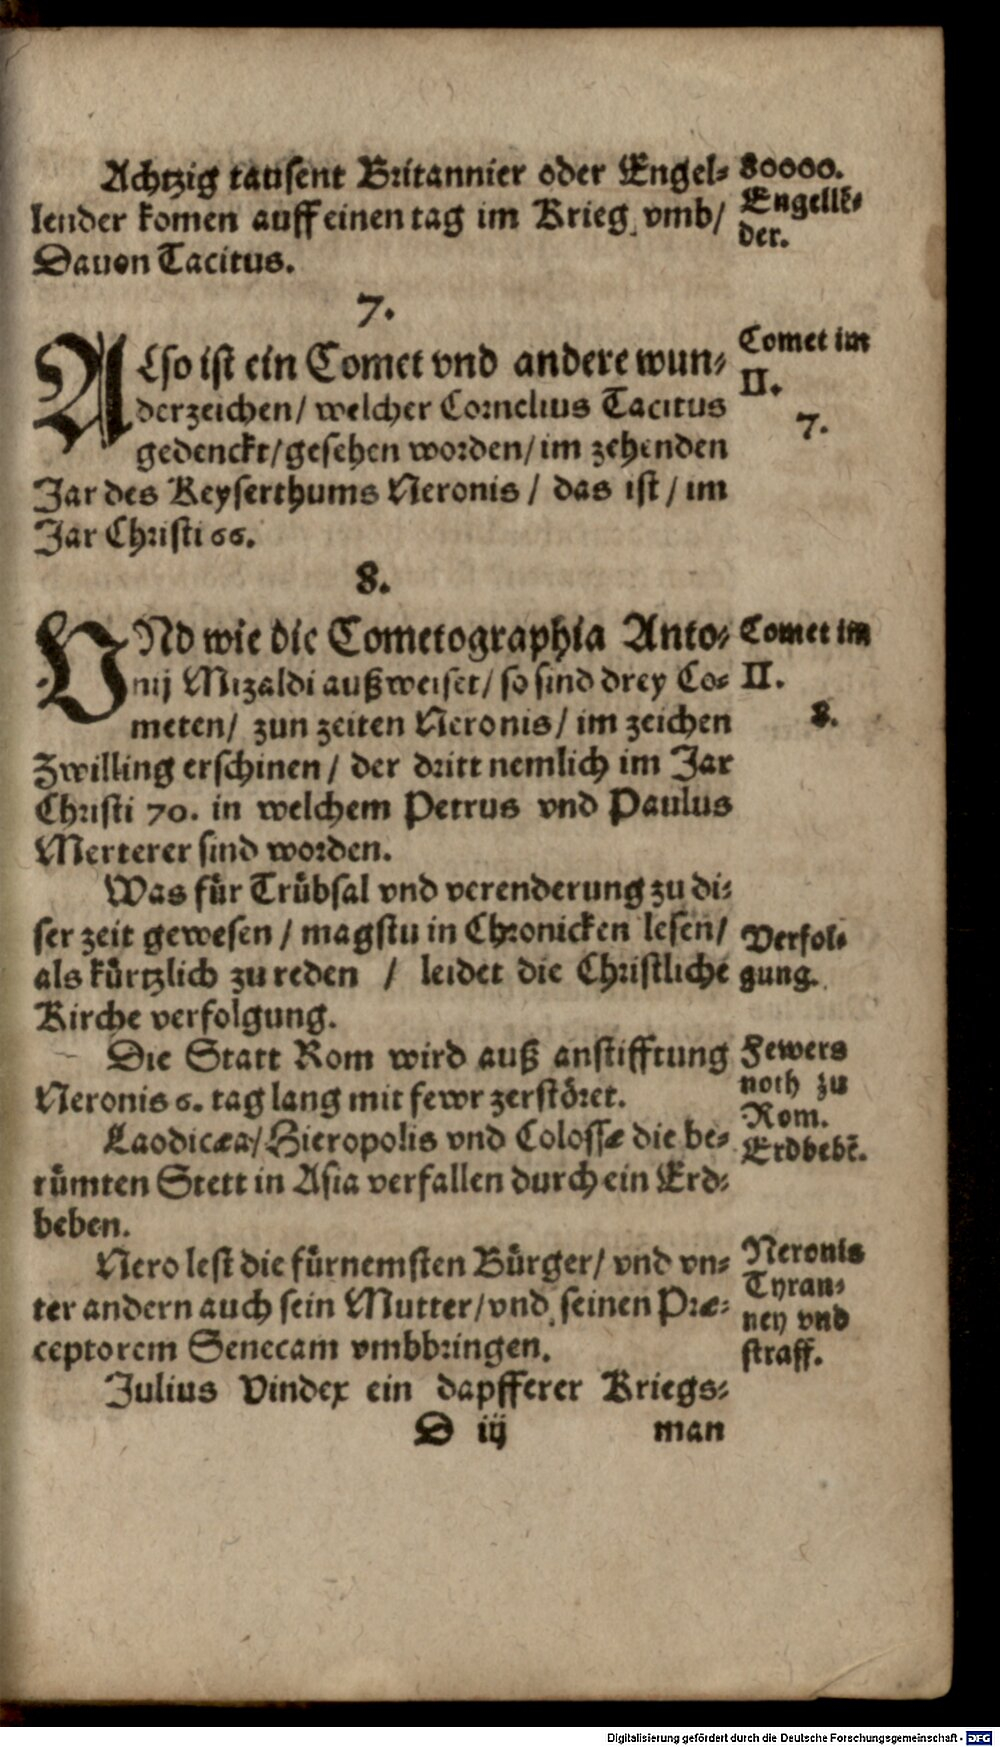 Achtzig tausent Britannier oder Engel-
lender komen auff einen tag im Krieg vmb/
Dauon Tacitus.
80000.
Engellē-
der.
7.
ALso ist ein Comet vnd andere wun-
derzeichen/ welcher Cornelius Tacitus
gedenckt/gesehen worden/im zehenden
Jar des Keyserthums Neronis / das ist / im
Jar Christi 66.
Comet im
II.
7.
8.
VNd wie die Cometographia Anto-
nij Mizaldi außweiset/ so sind drey Co-
meten/ zun zeiten Neronis/ im zeichen
Zwilling erschinen / der dritt nemlich im Jar
Christi 70. in welchem Petrus vnd Paulus
Merterer sind worden.
Comet im
II.
8.
Was für Trübsal vnd verenderung zu di-
ser zeit gewesen / magstu in Chronicken lesen/
als kürtzlich zu reden / leidet die Christliche
Kirche verfolgung.
Verfol-
gung.
Die Statt Rom wird auß anstifftung
Neronis 6. tag lang mit fewr zerstöret.
Fewers
noth zu
Rom.
Laodicæa/Hieropolis vnd Colossæ die be-
rümten Stett in Asia verfallen durch ein Erd-
beben.
Erdbebē.
Nero lest die fürnemsten Bürger/ vnd vn-
ter andern auch sein Mutter/vnd seinen Præ-
ceptorem Senecam vmbbringen.
Neronis
Tyran-
ney vnd
straff.
Julius Vindex ein dapfferer Kriegs-
D iij
man
Digitalisierung gefördert durch die Deutsche Forschungsgemeinschaft - DFG